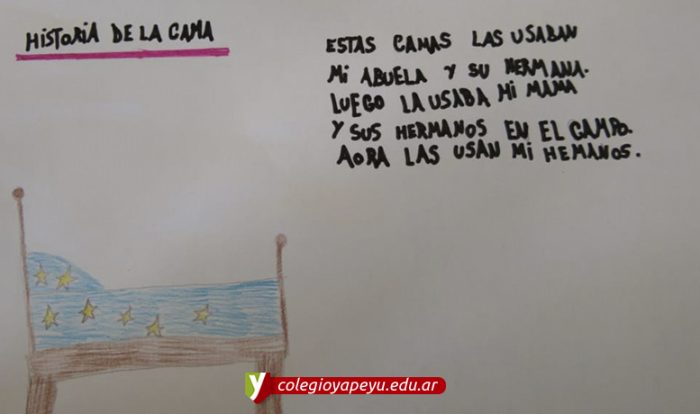 HISTORIA DE LA CAMA
ESTAS CAMAS LAS USABAN
MI ABUELA Y SU HERMANA.
LUEGO LA USABA MI MAMA
Y SUS HERMANOS EN EL CAMPO.
AORA LAS USAN MI HEMANOS.
colegioyapeyu.edu.ar